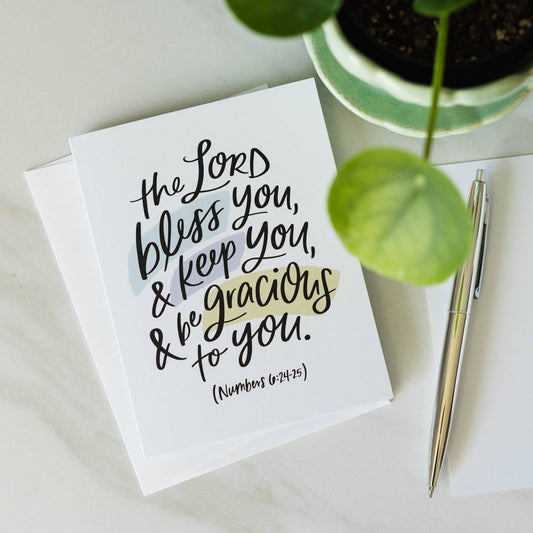 the LORD
bless you,
& keep you,
& be gracious
to you.
(Numbers 6:24-25)